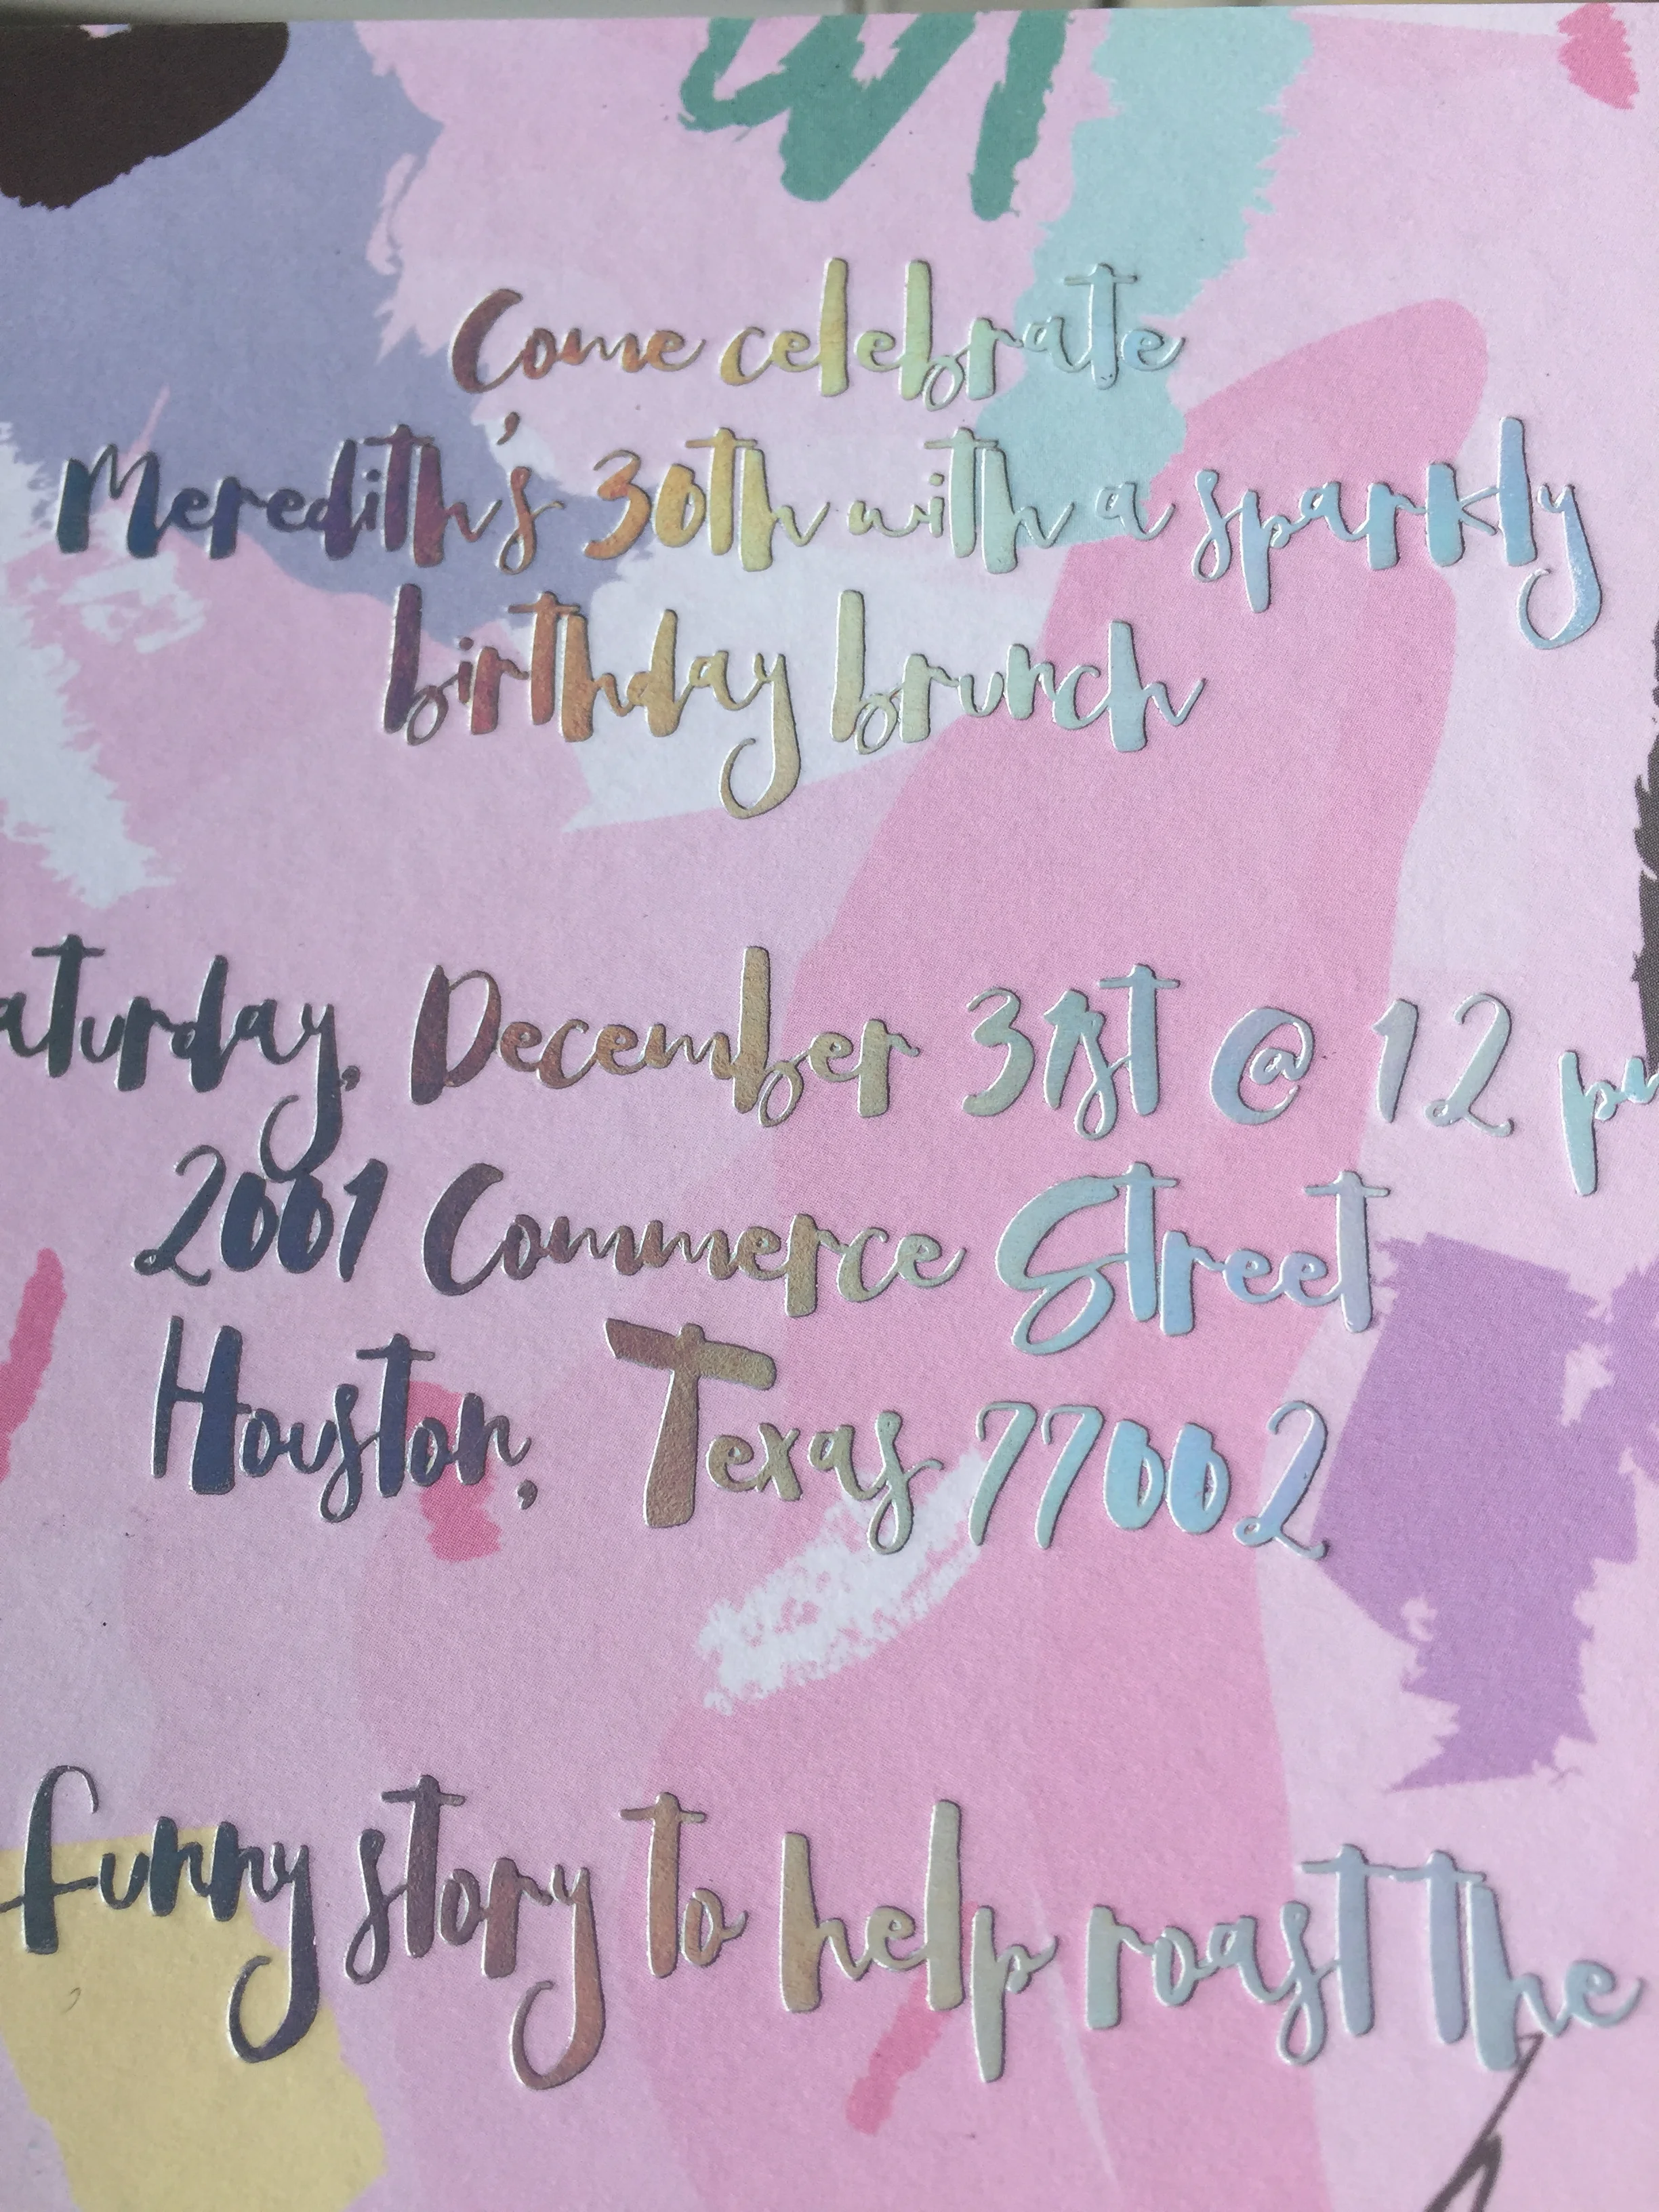 Come celebrate
Meredith's 30th with a sparkly
birthday brunch
aturday, December 31st @ 12 p
2001 Commerce Street
Houston, Texas 77002
funny story to help roast the